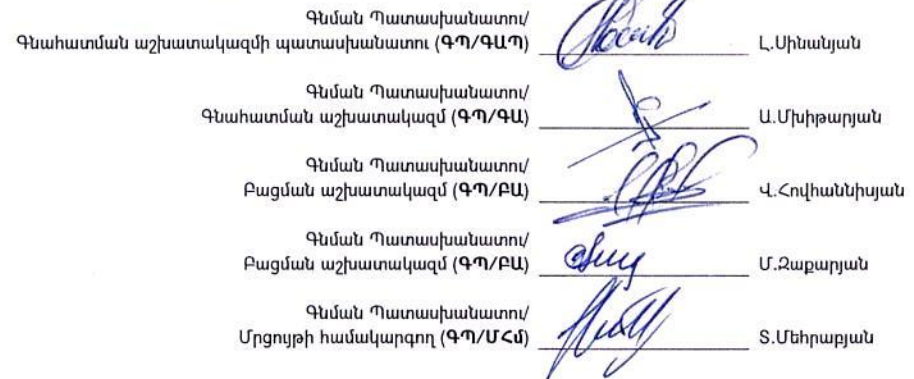 Գնման Պատասխանատու/
Գնահատման աշխատակազմի պատասխանատու (ԳՊ/ԳԱՊ) Լ.Սինանյան
Գնման Պատասխանատու/
Գնահատման աշխատակազմ (ԳՊ/ԳԱ) Ա.Մխիթարյան
Գնման Պատասխանատու/
Բացման աշխատակազմ (ԳՊ/ԲԱ) Վ.Հովհաննիսյան
Գնման Պատասխանատու/
Բացման աշխատակազմ (ԳՊ/ԲԱ) Մ.Զաքարյան
Գնման Պատասխանատու/
Մրցույթի համակարգող (ԳՊ/ՄՀմ) Տ.Մեհրաբյան